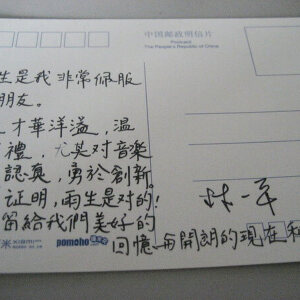 中国邮政明信片
Postcard
The People's Republic of China
生是我非常佩服
朋友。
才華洋溢，温
禮，尤其对音樂
認真，勇於創新。
证明，雨生是对的！
留給我們美好的
回憶
開朗的現在和
林一平
pomoho